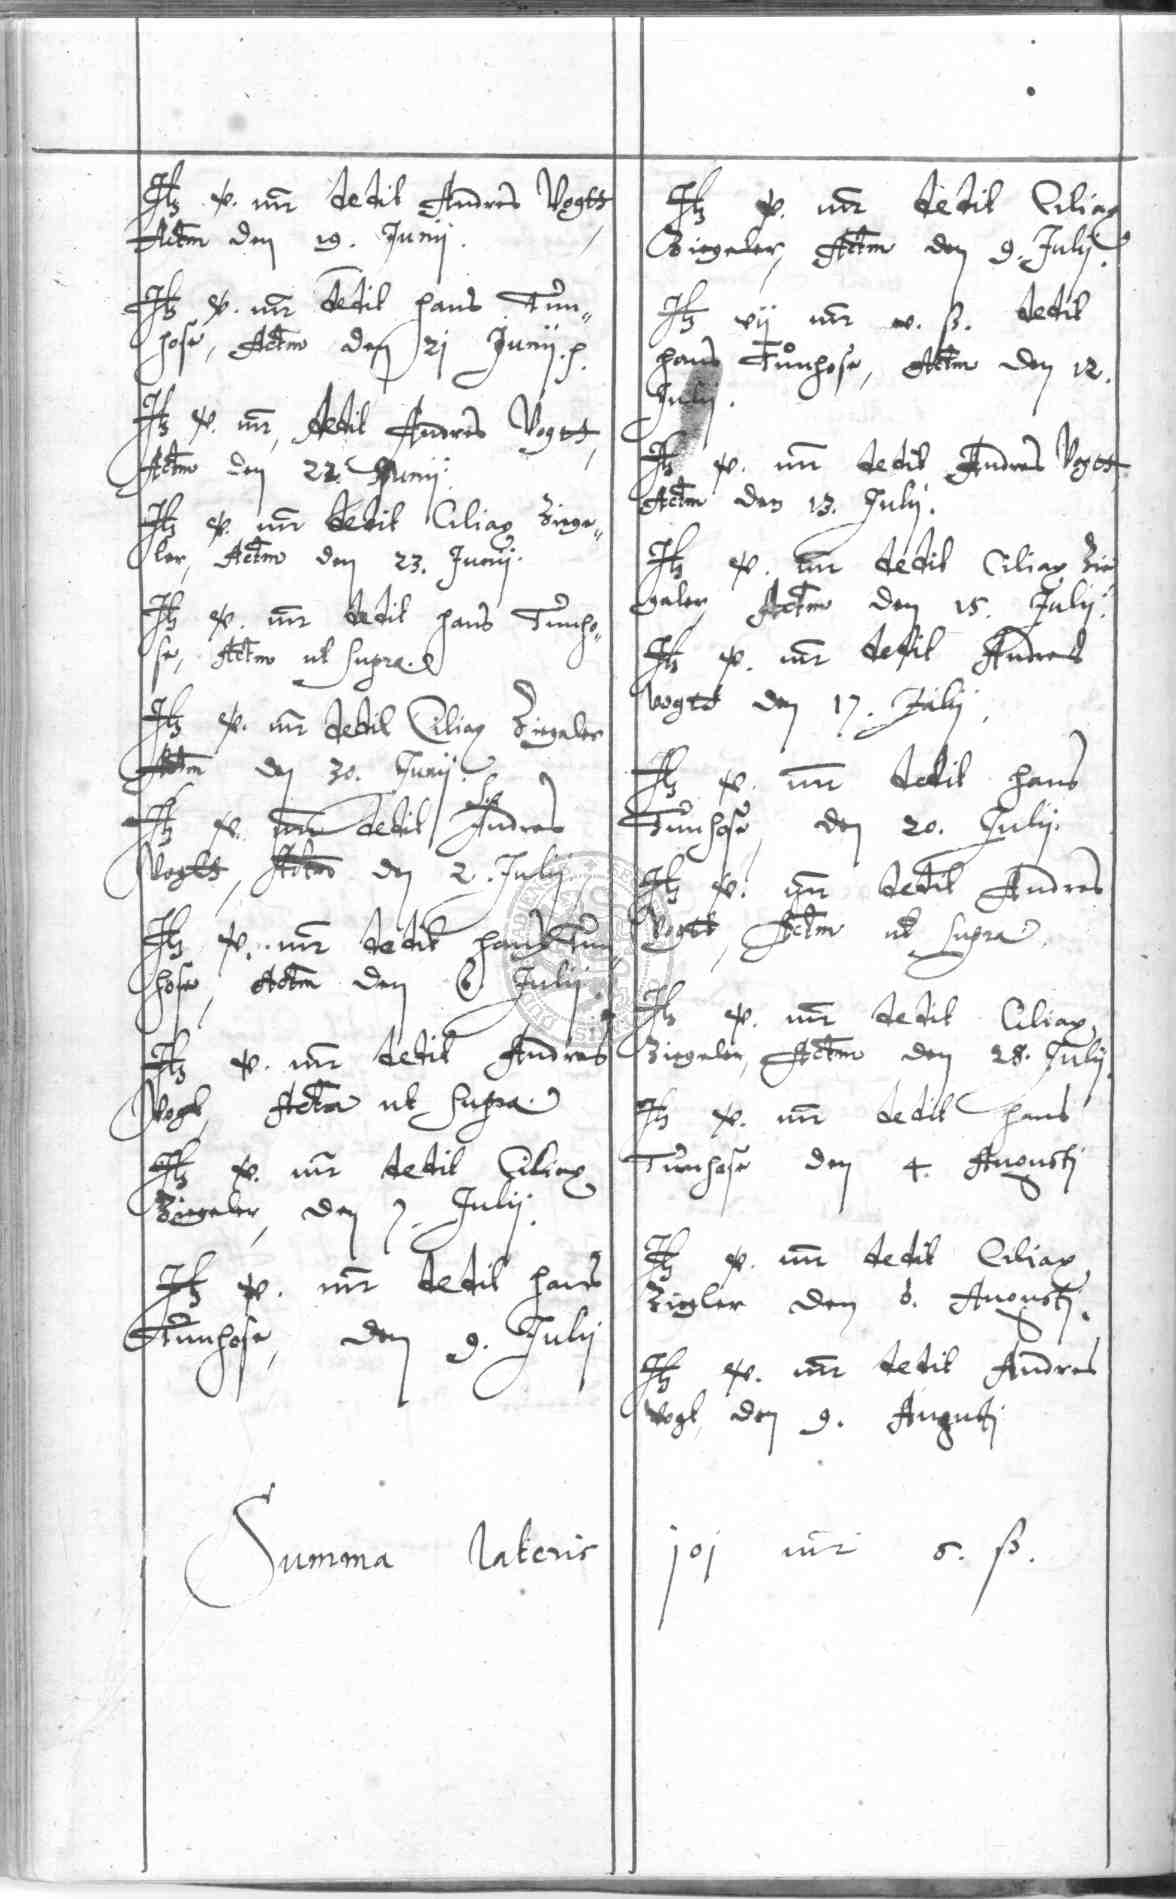 Itz v. mr dedit Andres Vogtt,
Actm den 19. Junij.
Itz v. mr dedit hans Tun„
hose, Actm den 21 Junij.
Itz v. mr, dedit Andres Vogtt,
Actm den 22. Junij.
Itz v. mr dedit Ciliax Ziege„
ler, Actm den 23. Junij.
Itz v. mr dedit hans Tunho„
se, Actm ut supra.
Itz v. mr dedit Ciliax Ziegeler
Actm den 30. Junij.
Itz v. mr dedit Andres
Vogtt, Actm den 2. Julij
Itz v. mr dedit hans Tun„
hose, Actm den 6 Julij.
Itz v. mr dedit Andres
Vogt, Actm ut supra.
Itz v. mr dedit Ciliax
Ziegeler, den 7. Julij.
Itz v. mr dedit hans
Tunhose, den 9. Julij
Itz v. mr dedit Ciliax
Ziegeler, Actm den 9. Julij.
Itz vij mr v. ß. dedit
hans Tunhose, Actm den 12.
Julij.
Itz v. mr dedit Andres Vogtt
Actm den 13. Julij.
Itz v. mr dedit Ciliax Zie
geler, Actm den 15. Julij.
Itz v. mr dedit Andres
Vogtt den 17. Julij,
Itz v. mr dedit hans
Tunhose, den 20. Julij.
Itz v. mr dedit Andres
Vogtt, Actm ut supra,
Itz v. mr dedit Ciliax,
Ziegeler, Actm den 28. Julij.
Itz v. mr dedit hans
Tunhose den 4. Augusti
Itz v. mr dedit Ciliax,
Ziegler den 8. Augusti.
Itz v. mr dedit Andres
Vogt, den 9. Augusti
Summa lateris joj mr 6. ß.